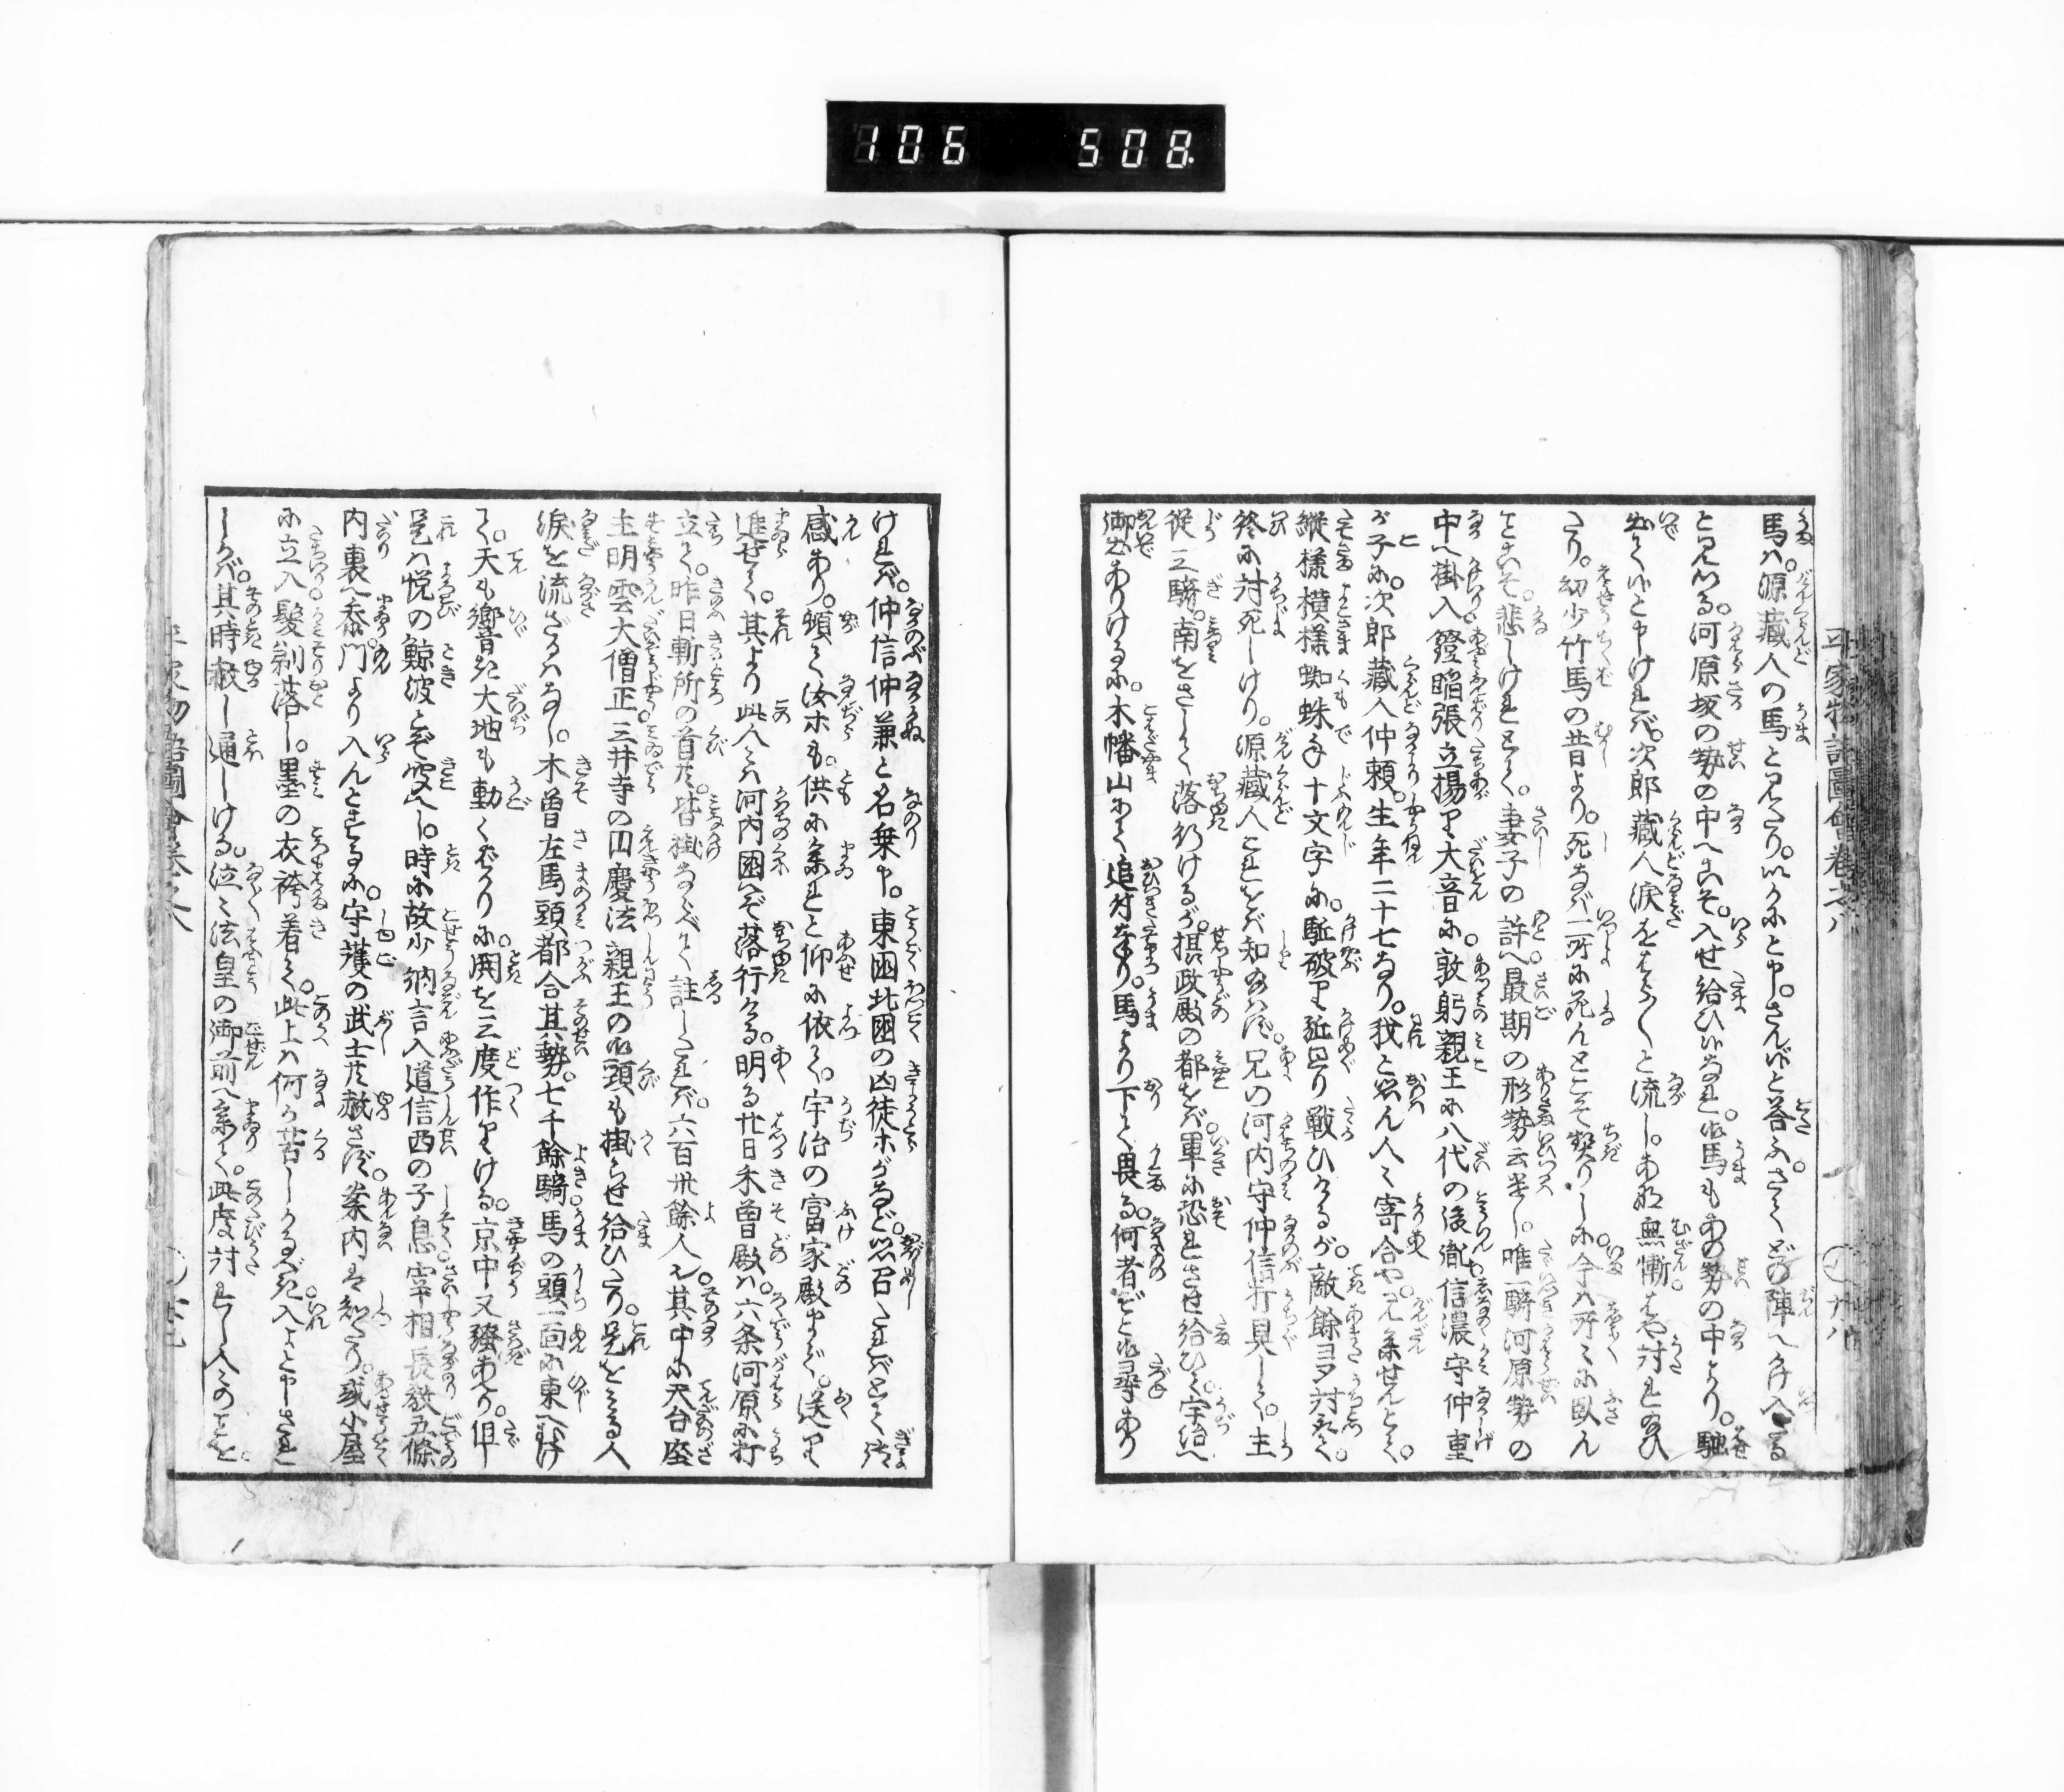 106 508
平家物語圖會卷之八
馬ハ。源藏人の馬と見えたり。いかにと申。さん候と答ふ。さてどの陣へかけ入たる
と見つる。河原坂の勢の中へこそ。入せ給ひ候なれ。御馬もあの勢の中より。馳
出て候と申けれバ。次郎藏人涙をはら〱と流し。あな無慚。はや討れ給ひ
たり。幼少竹馬の昔より。死なバ一所に死んとこそ契りしに。今ハ所〻に臥ん
ことこそ。悲しけれとて。妻子の許へ最期の形勢云遣し。唯一騎河原勢の
中へ掛入鐙踏張立揚り大音に。敦躬親王に八代の後胤信濃守仲重
が子に。次郎藏人仲頼。生年二十七なり。我と思ん人〻寄合や。見參せんとて。
縦様横様蜘蛛手十文字に。駈破り駈廻り戦ひけるが。敵餘多討取て。
終に討死しけり。源藏人これをバ知給ハず。兄の河内守仲信打具して。主
從三騎。南をさして落行けるが。摂政殿の都をバ軍に恐れさせ給ひて。宇治へ
御出ありけるに。木幡山にて追付奉り。馬より下て畏る。何者ぞと御尋あり
けれバ。仲信仲兼と名乗申。東国北国の凶徒ホがなど。思召たれバとて。御
感あり。頓て汝ホも。供に參れと仰に依て。宇治の富家殿まで。送り
進せて。其より此人〻ハ河内国へぞ落行ける。明る廿日木曽殿ハ。六条河原に打
立て。昨日斬所の首共。皆掛ならべて註したれバ。六百卅餘人也。其中に天台座
主明雲大僧正三井寺の円慶法親王の御頭も掛らせ給ひたり。是をみる人
涙を流さゞるハなし。木曽左馬頭都合其勢。七千餘騎。馬の頭一面に東へむけ
て。天も響き大地も動くばかりに。鬨を三度作りける。京中又騒あへり。但
是ハ悦の鯨波とぞ聞へし。時に故少納言入道信西の子息宰相長教五條
内裏へ參。門より入んとするに。守護の武士共赦さず。案内ハ知たり。或小屋
に立入髪剃落し。墨の衣袴着て。此上ハ何か苦しかるべき入よと申されし
しかバ。其時赦し通しける。泣〻法皇の御前へ參て。此度討れし人のことを。